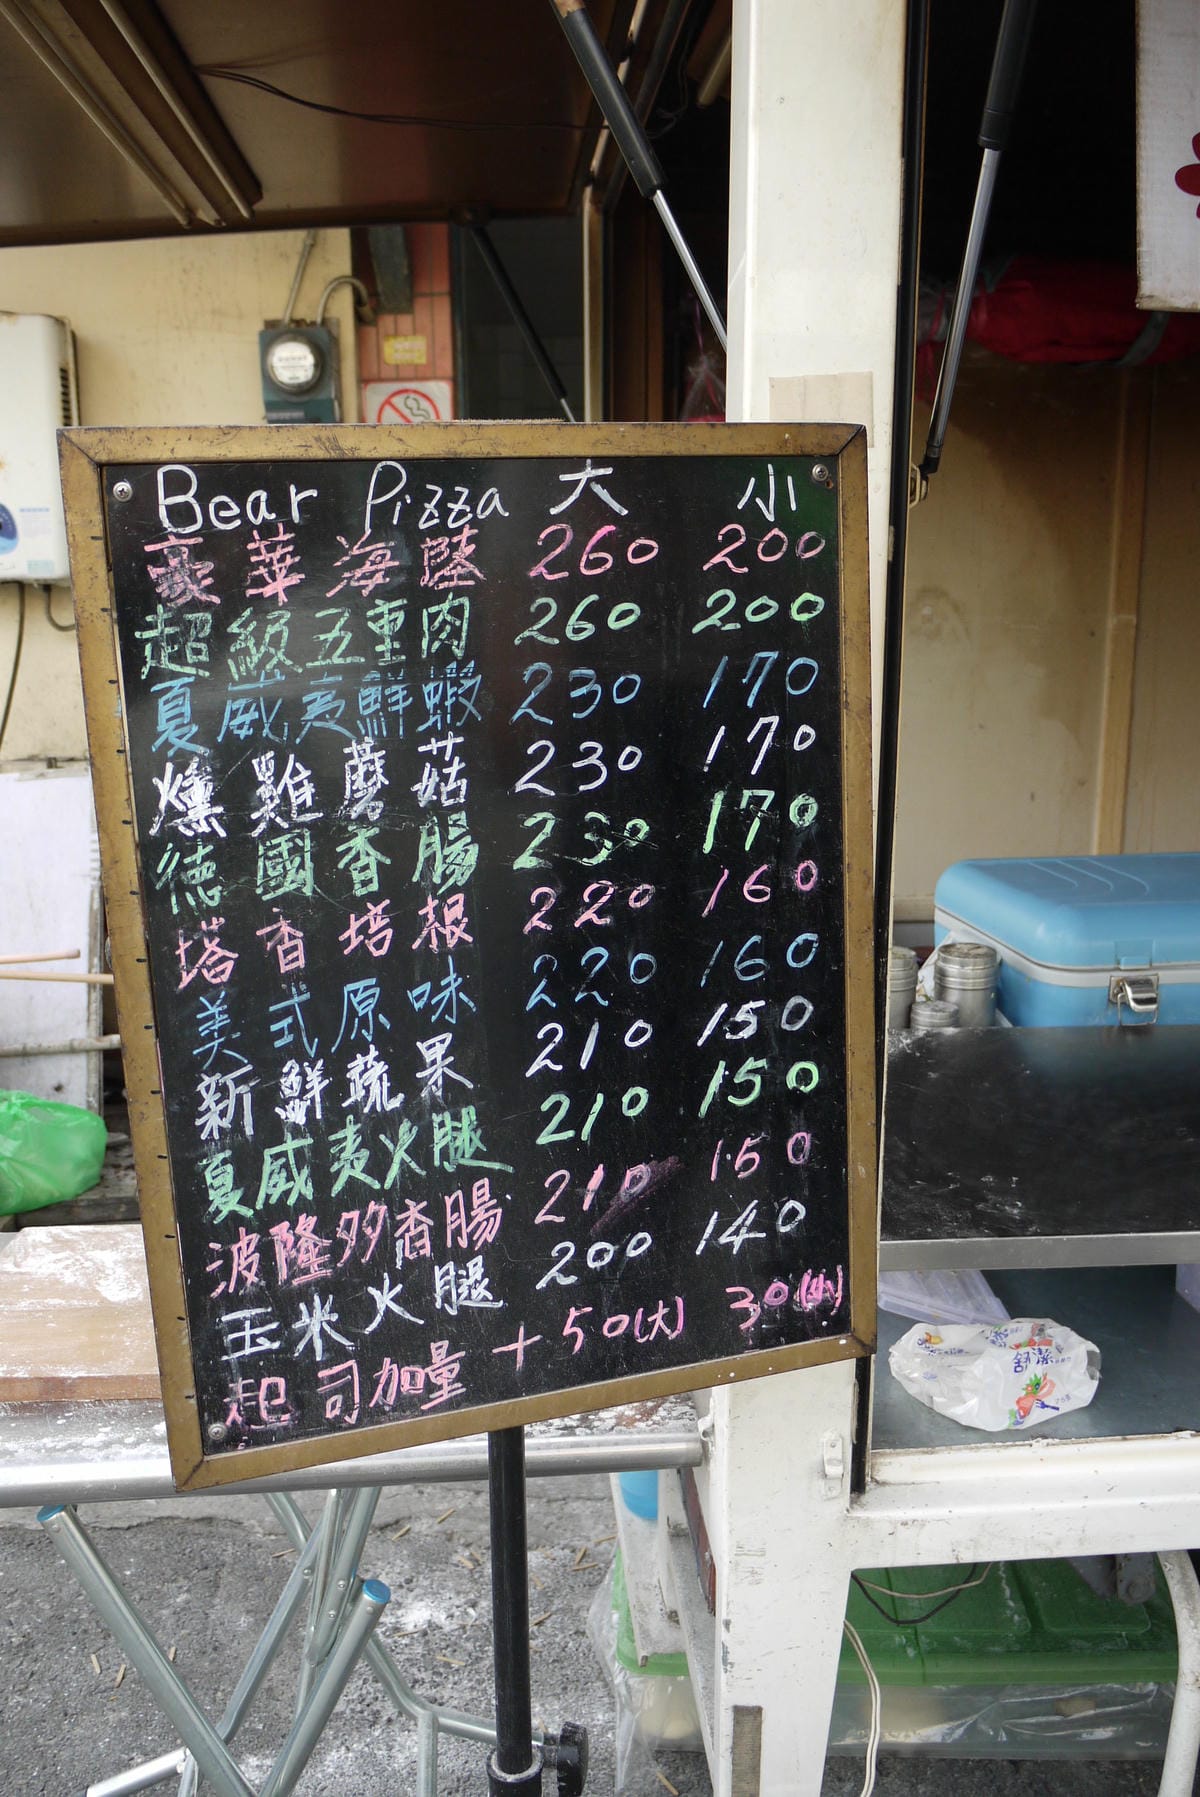 Bear Pizza 大 小
豪華海陸 260 200
超級五重肉 260 200
夏威夷鮮蝦 230 170
燻雞蘑菇 230 170
德國香腸 230 170
塔香培根 220 160
美式原味 220 160
新鮮蔬果 210 150
夏威夷火腿 210 150
波隆多香腸 210 150
玉米火腿 200 140
起司加量 + 50(大) 30(小)
舒潔